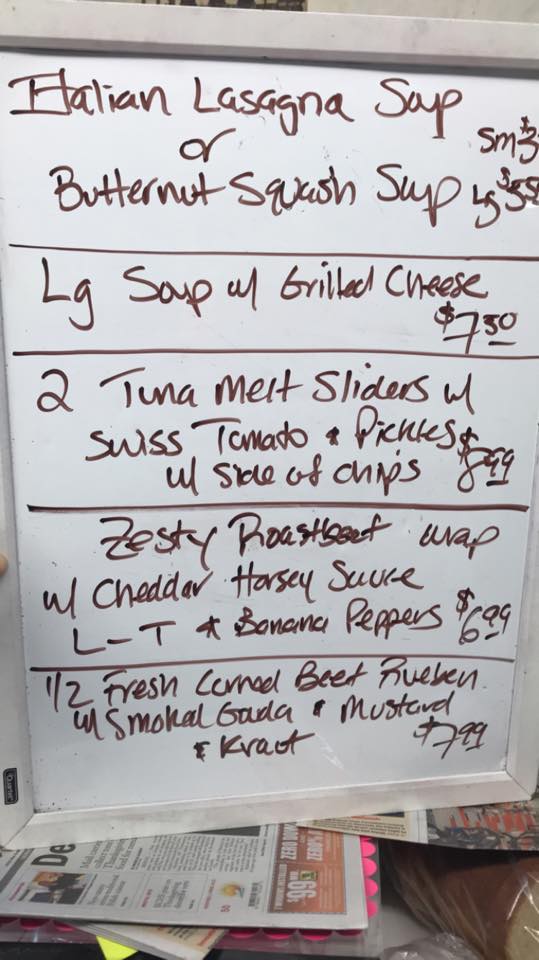 Italian Lasagna Soup
or
Sm $3
Butternut Squash Soup Lg $5.5
Lg Soup w/ Grilled Cheese
$7.50
2 Tuna Melt Sliders w/
Swiss Tomato & Pickles
w/ side of chips $8.99
Zesty Roastbeef wrap
w/ Cheddar Horsey Sauce
L-T & Banana Peppers $6.99
1/2 Fresh Corned Beef Rueben
w/ Smoked Gouda & Mustard
& Kraut $7.99
Quartet
De
66¢